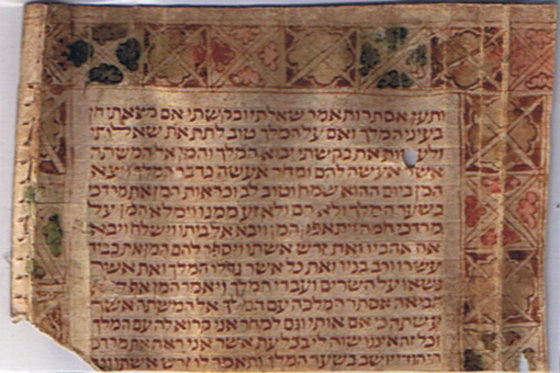 ותען אסתר ותאמר שאלתי ובקשתי אם מצאתי חן
בעיני המלך ואם על המלך טוב לתת את שאלתי
ולעשות את בקשתי יבוא המלך והמן אל המשתה
אשר אעשה להם ומחר אעשה כדבר המלך ויצא
המן ביום ההוא שמח וטוב לב וכראות המן את מרדכי
בשער המלך ולא קם ולא זע ממנו וימלא המן על
מרדכי חמה ויתאפק המן ויבא אל ביתו וישלח ויבא
את אהביו ואת זרש אשתו ויספר להם המן את כבוד
עשרו ורב בניו ואת כל אשר גדלו המלך ואת אשר
נשאו על השרים ועבדי המלך ויאמר המן אף לא
הביאה אסתר המלכה עם המלך אל המשתה אשר
עשתה כי אם אותי וגם למחר אני קרוא לה עם המלך
וכל זה איננו שוה לי בכל עת אשר אני ראה את מרדכי
היהודי יושב בשער המלך ותאמר לו זרש אשתו